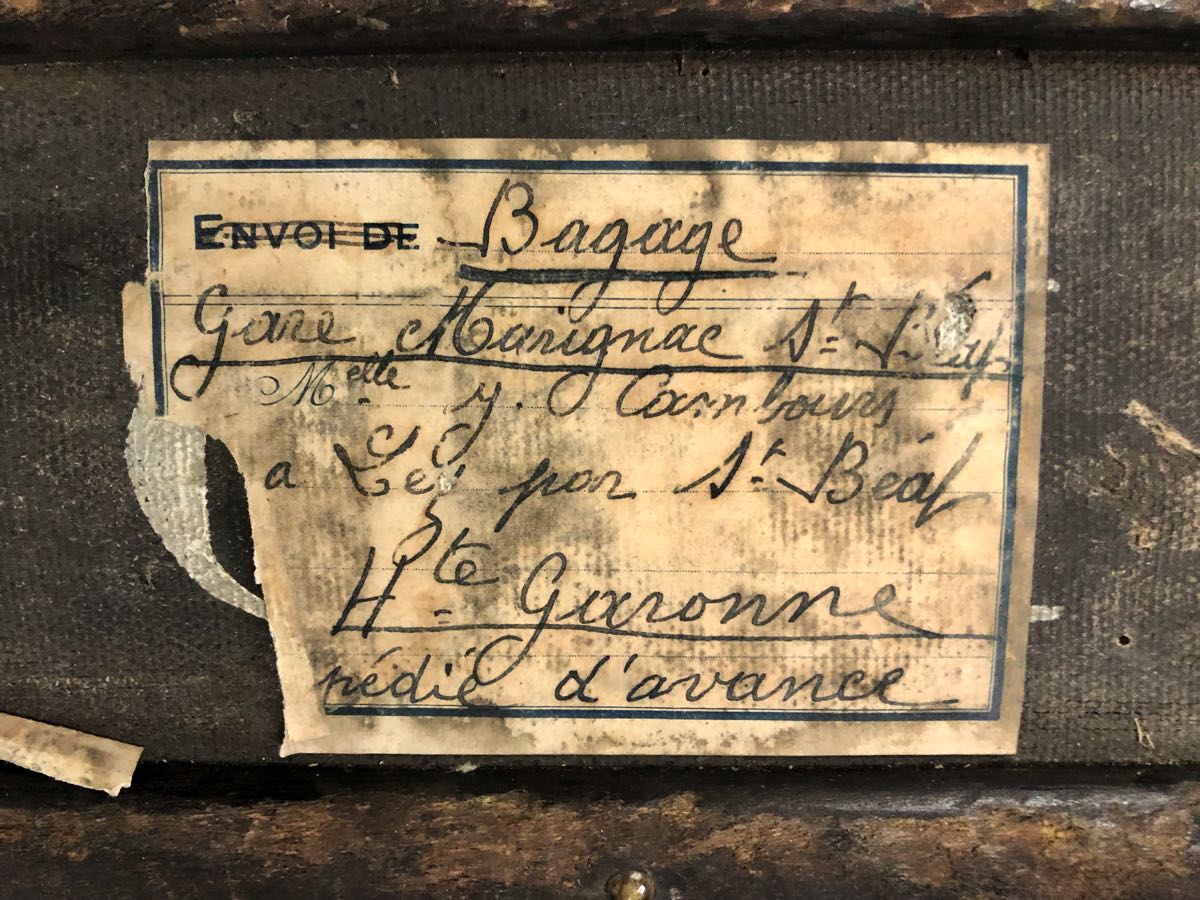 ENVOI DE Bagage
Gare Marignac St Béat
Melle Y. Cambours
a Lès par St Béat
Hte Garonne
pédié d'avance